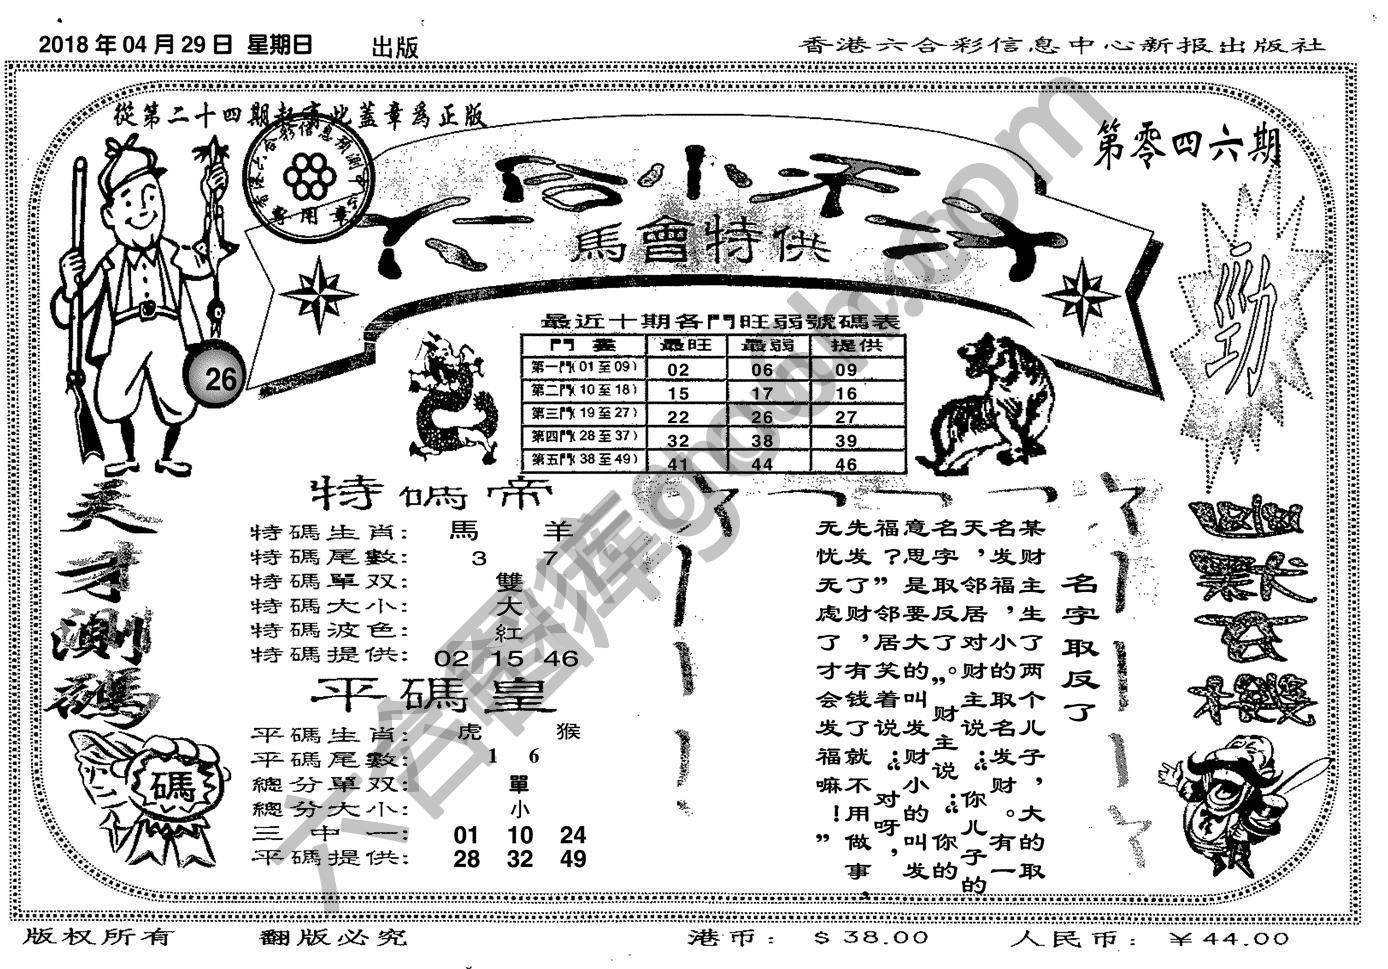 2018 年 04 月 29 日 星期日 出版
香港六合彩信息中心新报出版社
從第二十四期起寄此蓋章爲正版
第零四六期
六合小天才
馬會特供
專用章
勁
26
最近十期各門旺弱號碼表
門 最旺 最弱 提供
第一門(01至09) 02 06 09
第二門(10至18) 15 17 16
第三門(19至27) 22 26 27
第四門(28至37) 32 38 39
第五門(38至49) 41 44 46
天才測碼
碼
特碼帝
特碼生肖: 馬 羊
特碼尾數: 3 7
特碼單双: 雙
特碼大小: 大
特碼波色: 紅
特碼提供: 02 15 46
平碼皇
平碼生肖: 虎 猴
平碼尾數: 1 6
總分單双: 單
總分大小: 小
三中一: 01 10 24
平碼提供: 28 32 49
名字取反了
某财主生了两个儿子，大的取
名发福，小的取名发财。有一
天，邻居对财主说：“你儿子的
名字取反了。”财主说：“你的
意思是要大的叫发财小的叫发
福？”邻居笑着说：“对呀，
先发了财，有钱了就不用做事，
无忧无虑了才会发福嘛！”
六合图库 ghwdh.com
版权所有 翻版必究
港币: $38.00 人民币: ￥44.00